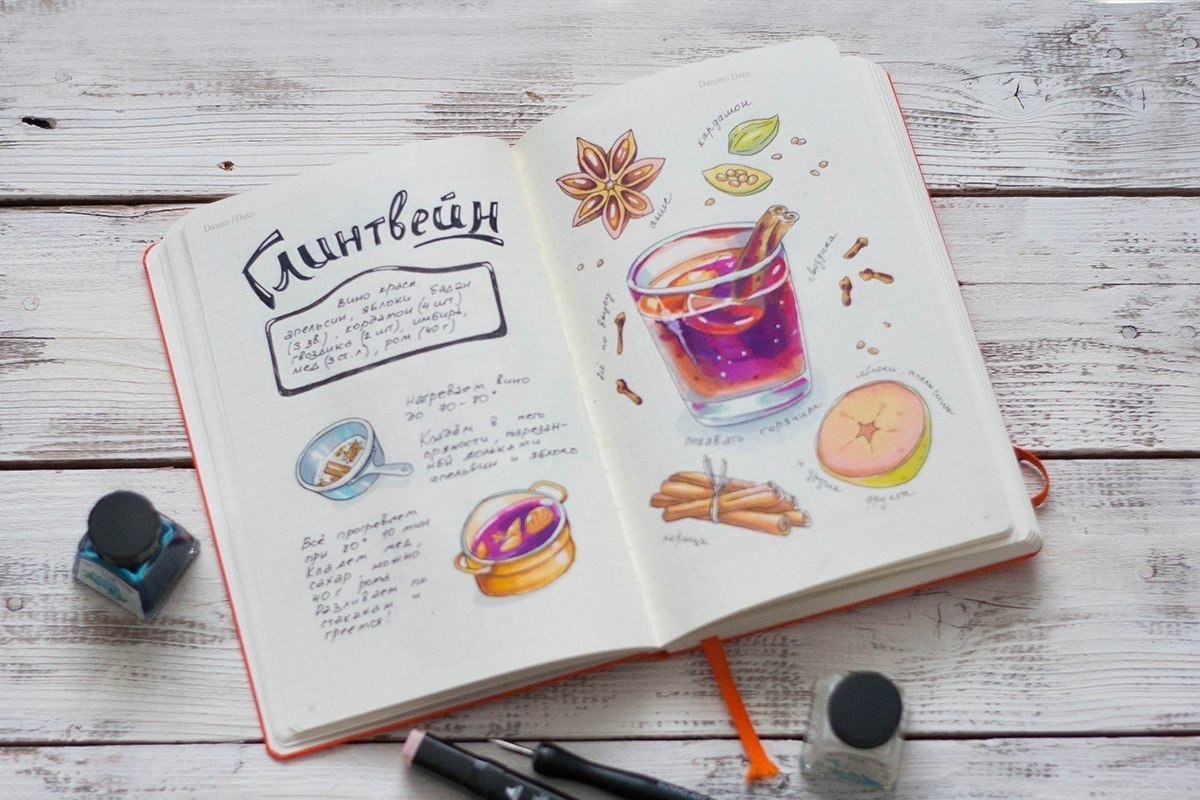 Datum / Date:
Глинтвейн
вино красн.
апельсин, яблоки, бадан
(3 зв.), кардамон (4 шт.)
гвоздика (2 шт), имбирь,
мед (3 ст. л), ром (40 г)
Нагреваем вино
до 70 - 80°
Кладём в него
пряности, нарезан-
ные дольками
апельсин и яблоко
Всё прогреваем
при 80° 10 мин
Кладем мед,
сахар, можно
40 г рома.
Разливаем по
стаканам и
греемся!
Datum / Date:
кардамон
анис
гвоздика
всё по вкусу
яблоки, апельсины
подавать горячим
и другие
фрукты
корица